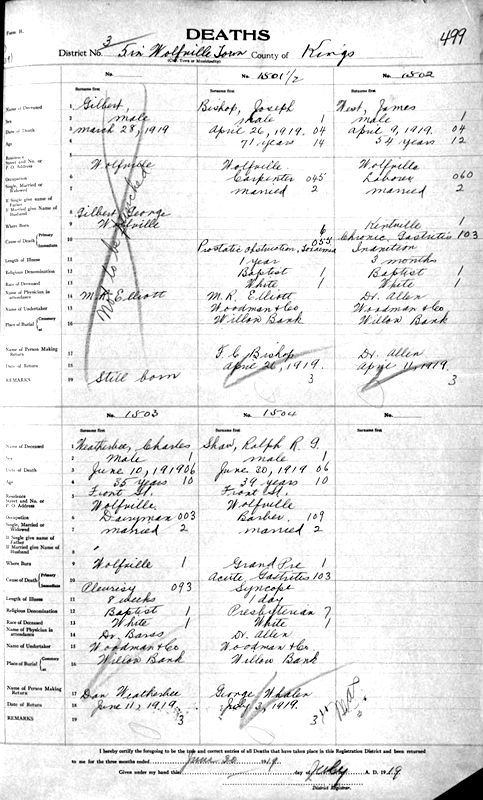 Form H.
DEATHS
499
District No. 3 5 in Wolfville Town County of Kings
(City, Town or Municipality)
No. No. 1501 1/2 No. 1502
Surname first Surname first Surname first
Name of Deceased 1 Gilbert, Bishop, Joseph West, James
Sex 2 male male 1 male 1
Date of Death 3 March 28, 1919 April 26, 1919. 04 April 9, 1919. 04
Age 4 71 years 14 54 years 12
Residence
Street and No. or
P. O. Address 5 Wolfville Wolfville Wolfville
Occupation 6 Carpenter 045 Laborer 060
Single, Married or
Widowed 7 married 2 married 2
If Single give name of
Father 8 Gilbert, George
If Married give Name of
Husband
Where Born 9 Wolfville 6 Kentville 1
Cause of Death Primary Immediate 10 Prostatic obstruction, 055 Chronic, Gastritis 103
Inanition
Length of Illness 11 1 year 3 months
Religious Denomination 12 Baptist 1 Baptist 1
Race of Deceased 13 White 1 White 1
Name of Physician in
attendance 14 M. R. Elliott M. R. Elliott Dr. Allen
Name of Undertaker 15 Woodman & Co Woodman & Co
Place of Burial 16 Willow Bank Willow Bank
Name of Person Making
Return 17 F. C. Bishop Dr. Allen
Date of Return 18 April 26, 1919. April 11, 1919.
REMARKS 19 Still born 3 3
Not to be punched
No. 1503 No. 1504 No.
Surname first Surname first Surname first
Name of Deceased 1 Weatherbee, Charles Shaw, Ralph R. G.
Sex 2 Male 1 male 1
Date of Death 3 June 10, 1919 06 June 20, 1919 06
Age 4 35 years 10 39 years 10
Residence
Street and No. or
P. O. Address 5 Front St. Front St.
Wolfville Wolfville
Occupation 6 Dairyman 003 Barber. 109
Single, Married or
Widowed 7 married 2 married 2
If Single give name of
Father 8
If Married give Name of
Husband
Where Born 9 Wolfville 1 Grand Pre 1
Cause of Death Primary Immediate 10 Pleurisy 093 Acute, Gastritis 103
Syncope
Length of Illness 11 8 weeks 1 day
Religious Denomination 12 Baptist 1 Presbyterian 7
Race of Deceased 13 White 1 White 1
Name of Physician in
attendance 14 Dr. Barss Dr. Allen
Name of Undertaker 15 Woodman & Co Woodman & Co
Place of Burial 16 Willow Bank Willow Bank
Name of Person Making
Return 17 Dan Weatherbee George Whalen
Date of Return 18 June 11, 1919. July 3, 1919.
REMARKS 19 3 3
I hereby certify the foregoing to be the true and correct entries of all Deaths that have taken place in this Registration District and been returned
to me for the three months ended June 30 1919
Given under my hand this day of July A. D. 1919
District Registrar.